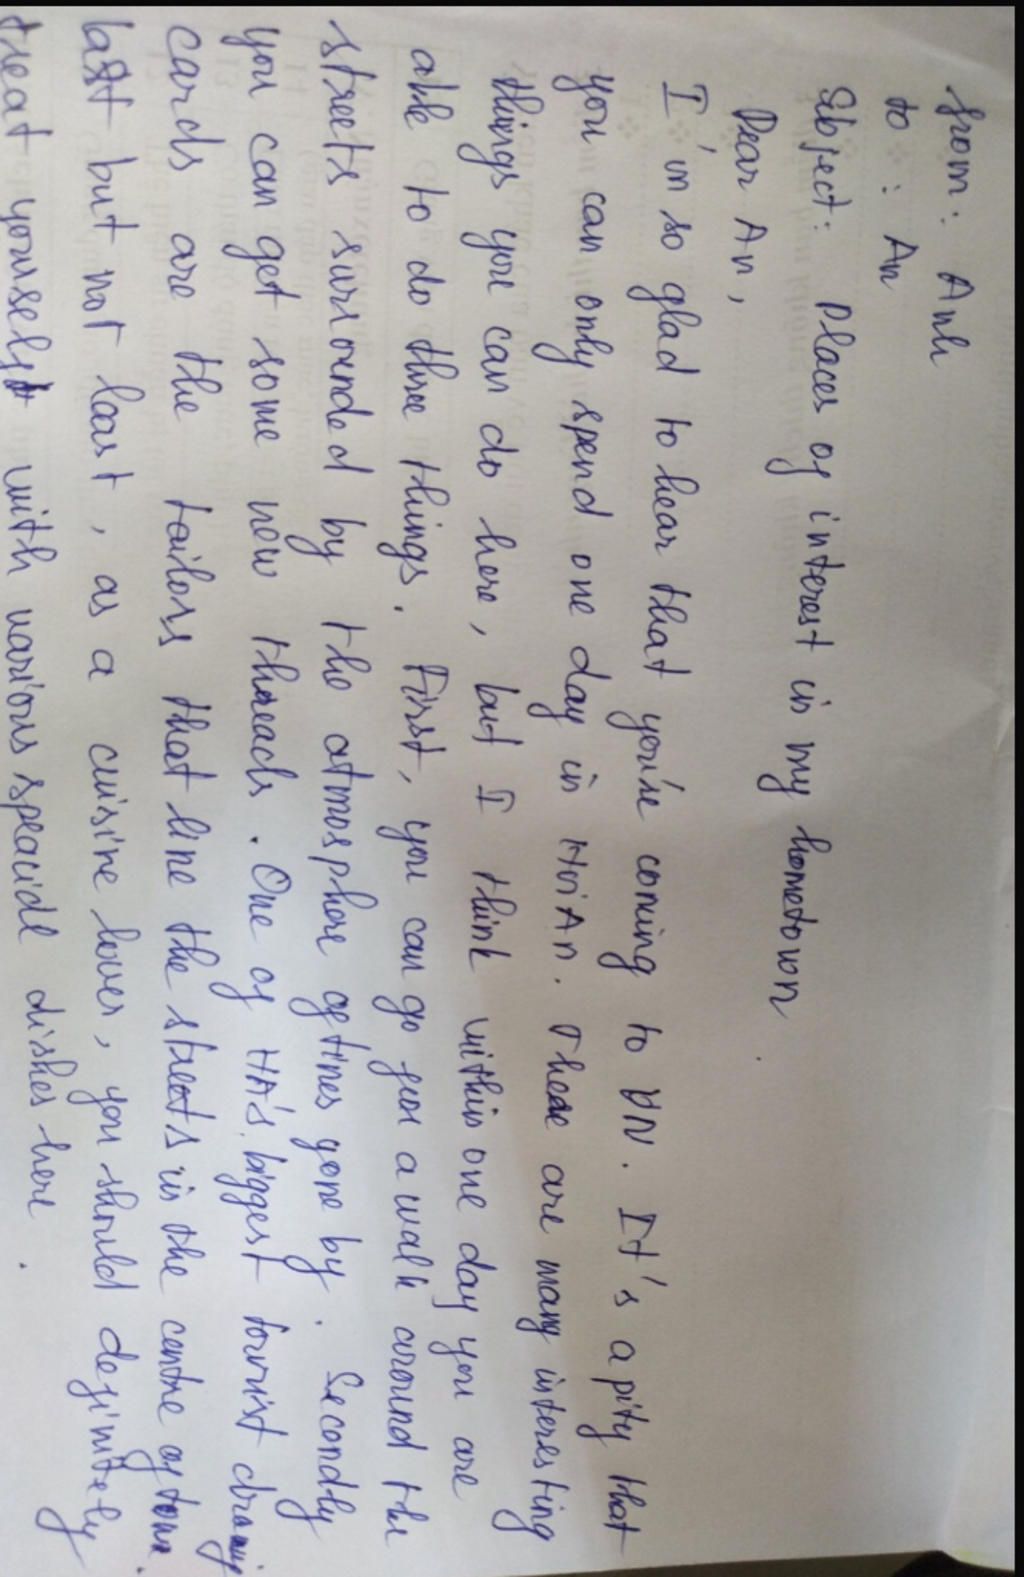 from: Anh
to: An
Subject: Places of interest in my hometown
Dear An,
I'm so glad to hear that you're coming to DN. It's a pity that
you can only spend one day in HoiAn. There are many interesting
things you can do here, but I think within one day you are
able to do three things. First, you can go for a walk around the
streets surrounded by the atmosphere of times gone by. Secondly
you can get some new threads. One of HA's biggest tourist drawing
cards are the tailors that line the streets in the centre of town.
last but not least, as a cuisine lover, you should definitely
treat yourself with various speacide dishes here.